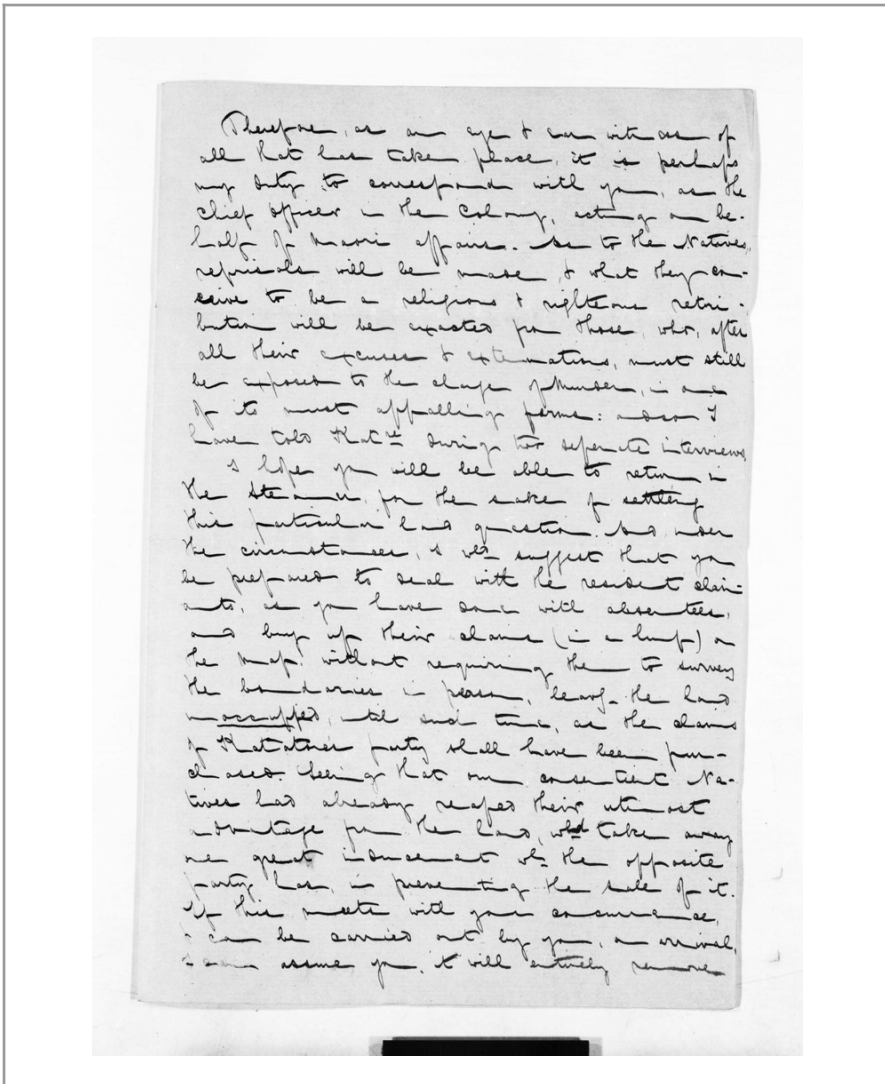 Therefore, as an eye & ear witness of
all that has take place, it is perhaps
my duty to correspond with you, as the
chief officer in the Colony, acting on be-
half of Maori affairs. As to the Natives,
reprisals will be made, & what they con-
ceive to be a religious & righteous retri-
bution will be exacted from those, who, after
all their excuses & extenuations, must still
be exposed to the charge of Murder, in one
of its most appalling forms: and so I
have told Katre during two seperate interviews.
I hope you will be able to return in
the Steamer, for the sake of settling
this particular land question. And under
the circumstances, I wld suggest that you
be prepared to deal with the resident claim-
ants, as you have done with absentees,
and buy up their claims (in a lump) on
the Map: without requiring them to survey
the boundaries in person, leavg the land
unoccupied, until such time, as the claims
of Katatore's party shall have been pur-
chased. Seeing that our consentient Na-
tives had already reaped their utmost
advantage from the land, wld take away
one great inducement wh the opposite
party has, in preventing the sale of it.
If this meets with your concurrence,
& can be carried out by you, on arrival,
I can assure you, it will entirely remove